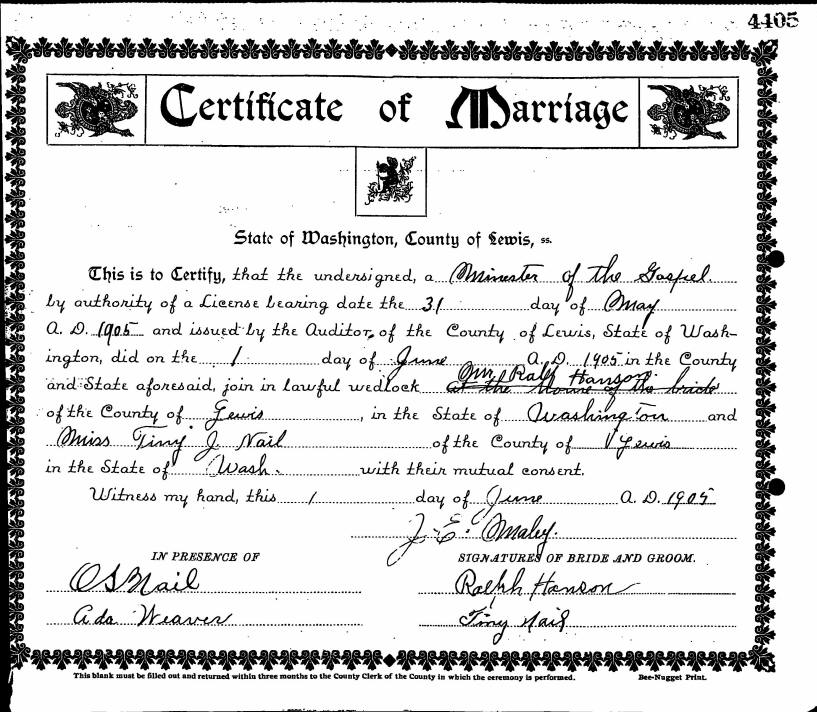 4405
Certificate of Marriage
State of Washington, County of Lewis, ss.
This is to Certify, that the undersigned, a Minister of the Gospel
by authority of a License bearing date the 31 day of May
A. D. 1905 and issued by the Auditor, of the County of Lewis, State of Wash-
ington, did on the 1 day of June A. D. 1905 in the County
Mr. Ralph Hanson
and State aforesaid, join in lawful wedlock at the Home of the bride
of the County of Lewis, in the State of Washington and
Miss Tiny J Nail of the County of Lewis
in the State of Wash. with their mutual consent.
Witness my hand, this 1 day of June A. D. 1905
J. E. Maley.
IN PRESENCE OF SIGNATURES OF BRIDE AND GROOM.
O S Nail Ralph Hanson
Ada Weaver Tiny Nail
This blank must be filled out and returned within three months to the County Clerk of the County in which the ceremony is performed. Bee-Nugget Print.